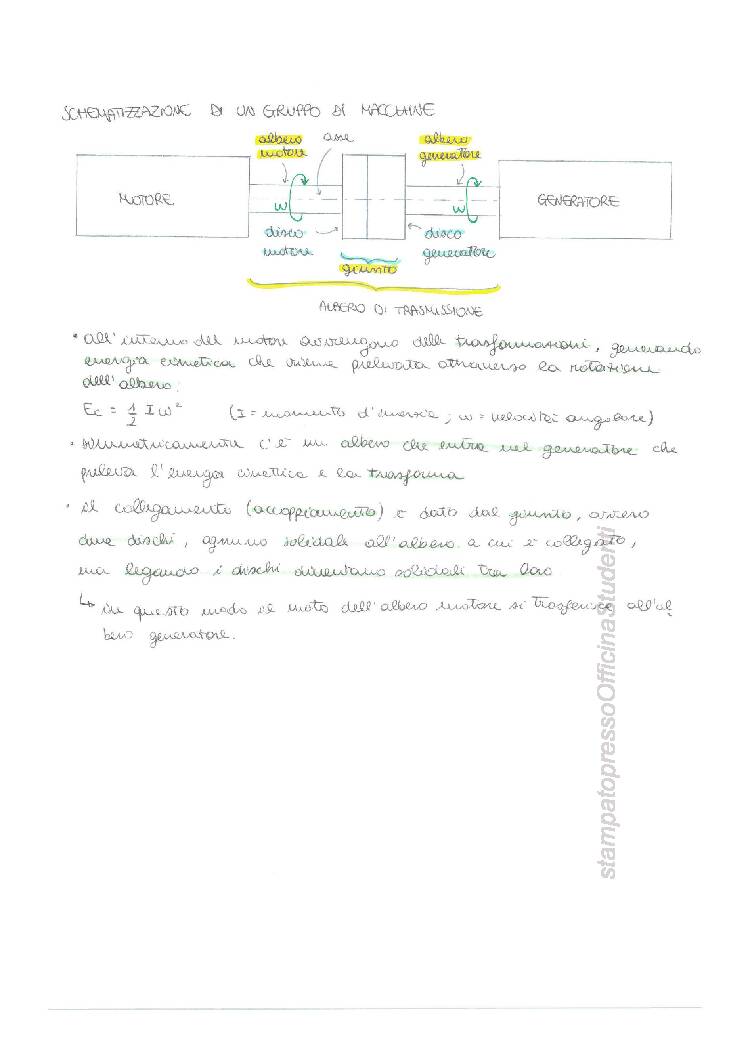 SCHEMATIZZAZIONE DI UN GRUPPO DI MACCHINE
albero motore
asse
albero generatore
MOTORE
ω
ω
GENERATORE
disco motore
disco generatore
giunto
ALBERO DI TRASMISSIONE
• all'interno del motore avvengono delle trasformazioni, generando
energia cinetica che viene prelevata attraverso la rotazione
dell'albero:
Ec = 1/2 I ω² (I = momento d'inerzia ; ω = velocità angolare)
• simmetricamente c'è un albero che entra nel generatore che
preleva l'energia cinetica e la trasforma
• il collegamento (accoppiamento) è dato dal giunto, ovvero
due dischi, ognuno solidale all'albero a cui è collegato,
ma legando i dischi diventano solidali tra loro
↳ in questo modo il moto dell'albero motore si trasferisce all'al
bero generatore.
stampatopressoOfficinaStudenti